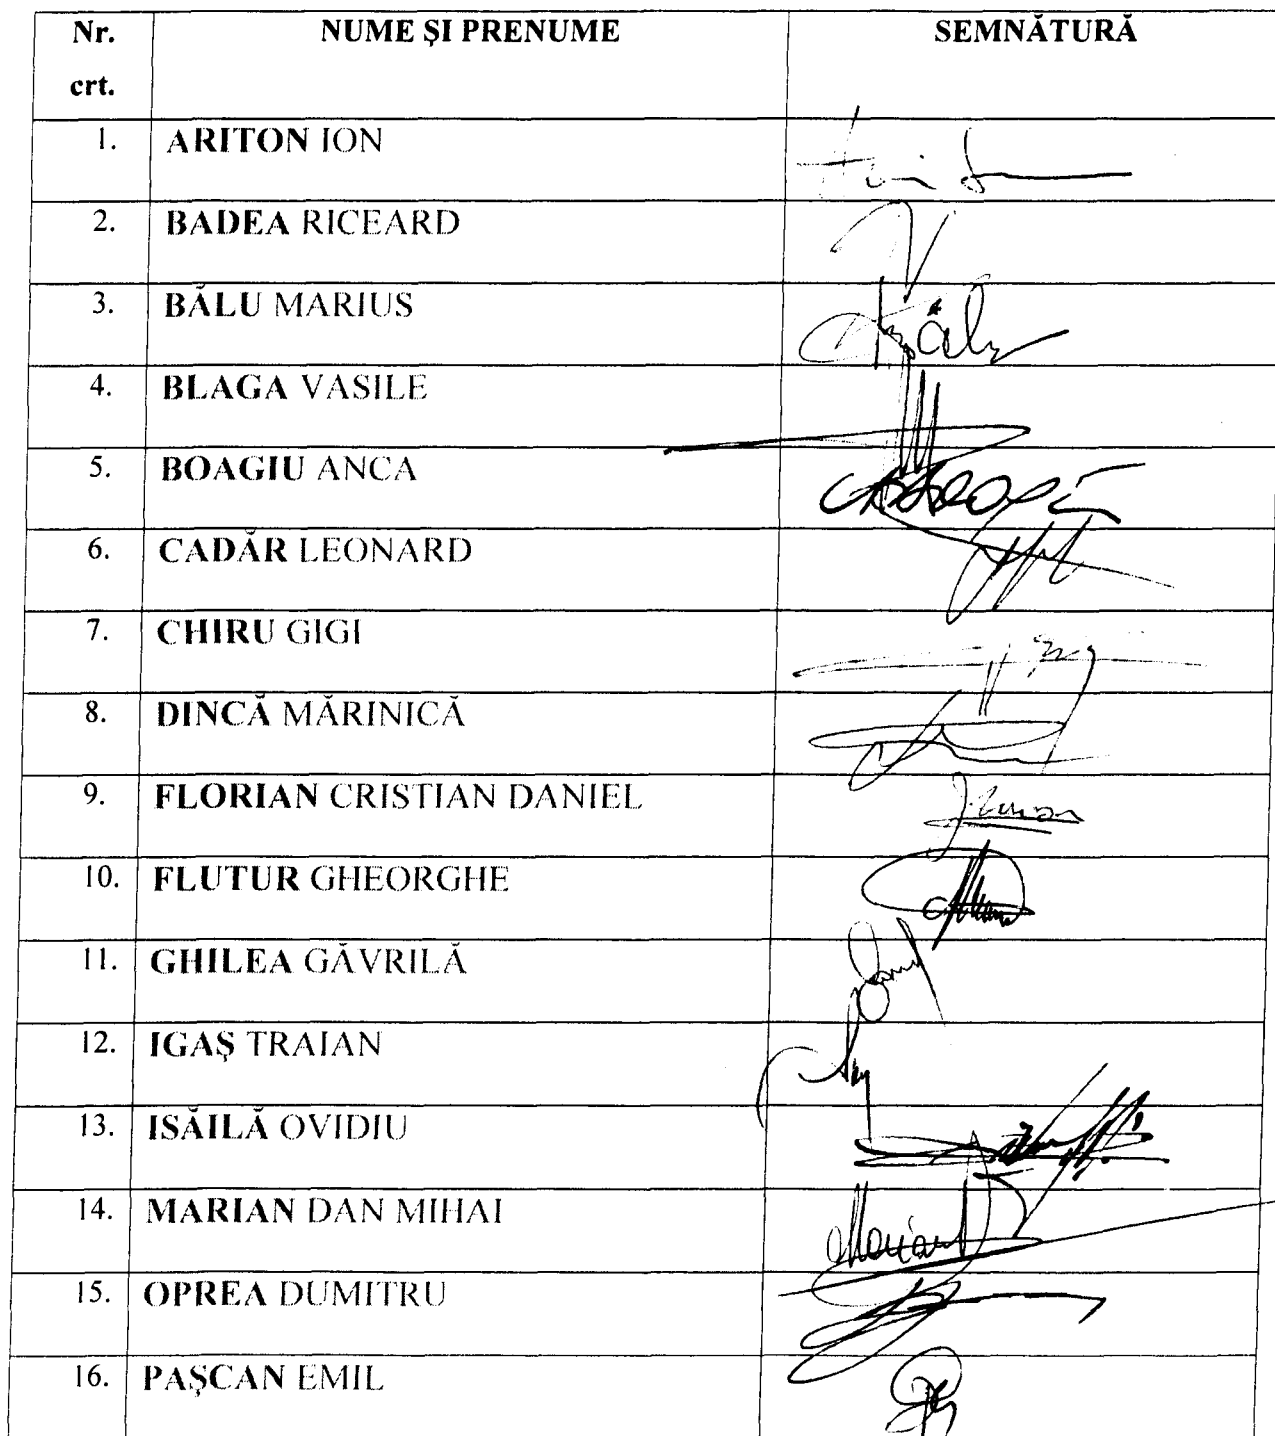 Nr. crt. NUME ȘI PRENUME SEMNĂTURĂ
1. ARITON ION
2. BADEA RICEARD
3. BĂLU MARIUS Bălu
4. BLAGA VASILE
5. BOAGIU ANCA
6. CADĂR LEONARD
7. CHIRU GIGI
8. DINCĂ MĂRINICĂ
9. FLORIAN CRISTIAN DANIEL
10. FLUTUR GHEORGHE
11. GHILEA GĂVRILĂ
12. IGAȘ TRAIAN
13. ISĂILĂ OVIDIU
14. MARIAN DAN MIHAI Marian
15. OPREA DUMITRU
16. PAȘCAN EMIL